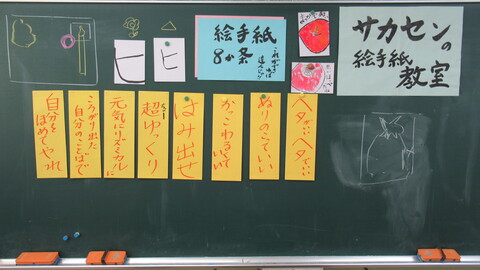 サカセンの
絵手紙
教室
絵手紙
8か条
ヘタでいいヘタがいい
ぬりのこていい
かっこわるくていい
はみ出せ
超ゆっくり
元気にリズミカルに
自分のことばで
自分を
ほめてやれ
ヒ
ヒ